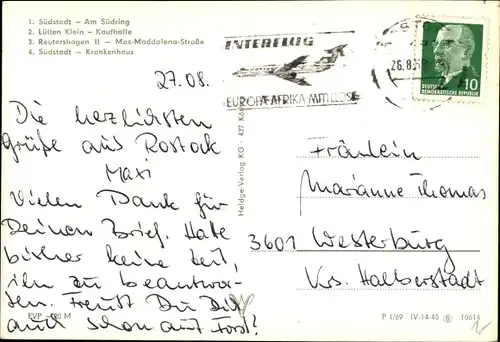 1. Südstadt – Am Südring
2. Lütten Klein – Kaufhalle
3. Reutershagen II – Max-Maddalena-Straße
4. Südstadt – Krankenhaus
INTERFLUG
EUROPA·AFRIKA·MITTL.OST
26.8.
DEUTSCHE
DEMOKRATISCHE REPUBLIK
10
27.08.
Die herzlichsten
Grüße aus Rostock
Maxi
Vielen Dank für
Deinen Brief. Hatte
bisher keine Zeit,
ihn zu beantwor-
ten. Freust Du Dich
auch schon auf Forst?
Heldge-Verlag KG · 437 Köthen
Fräulein
Marianne Thomas
3601 Westerburg
Krs. Halberstadt
EVP –,20 M
P 1/69 IV-14-45 10614